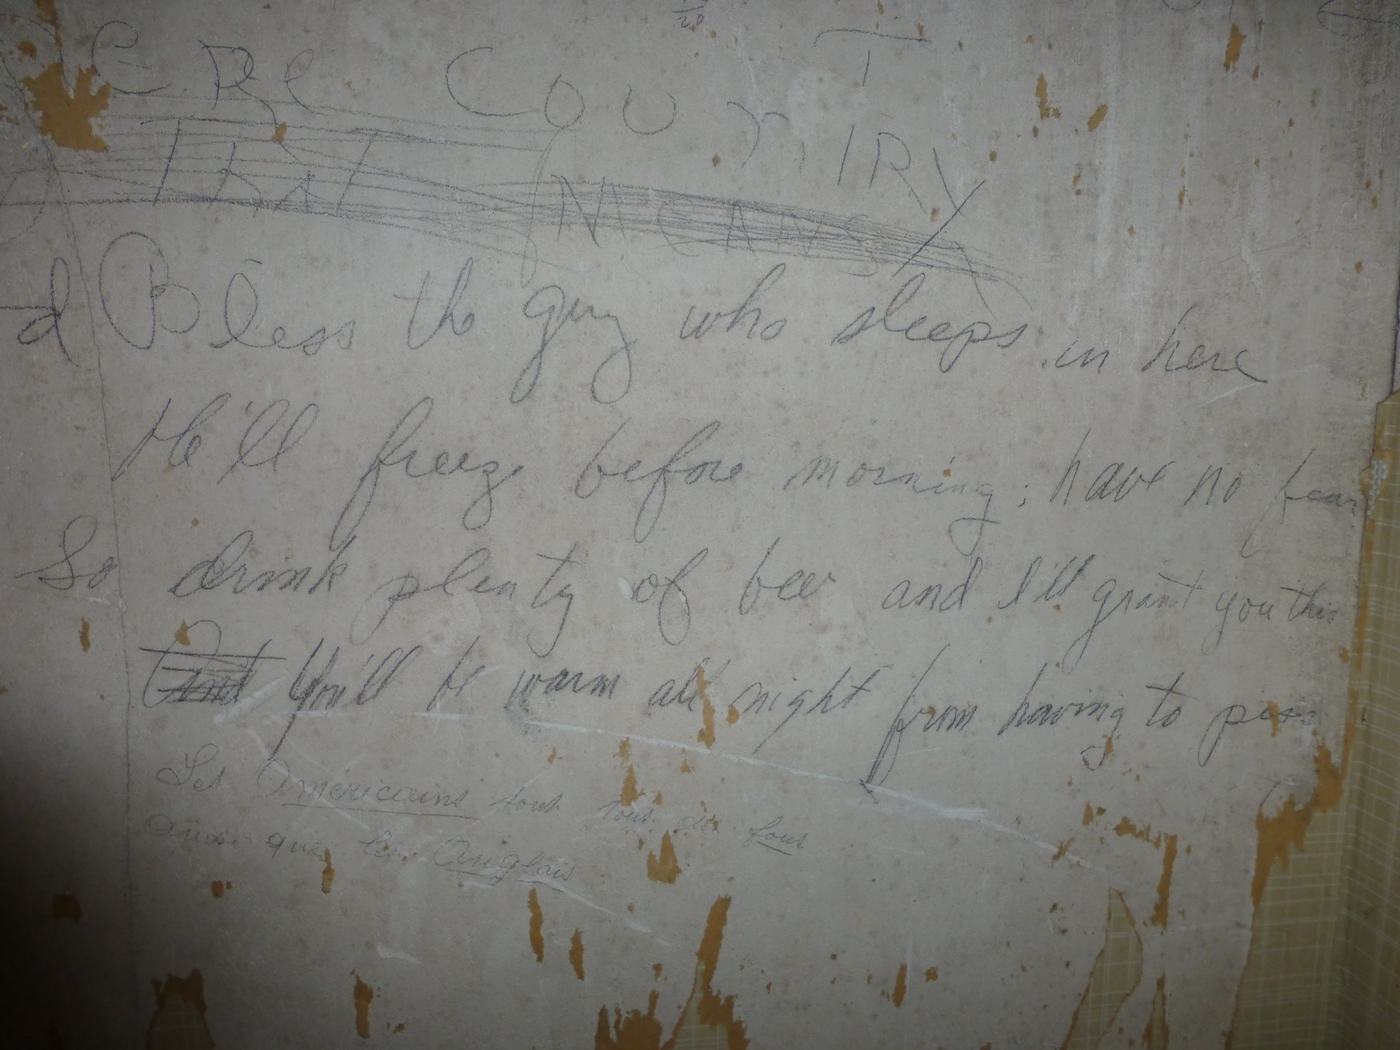 COUNTRY
THAT MEANS
d Bless the guy who sleeps in here
He'll freeze before morning; have no fear
So drink plenty of beer and I'll grant you this
And You'll be warm all night from having to piss
Les Américains sont tous des fous
ainsi que les Anglais